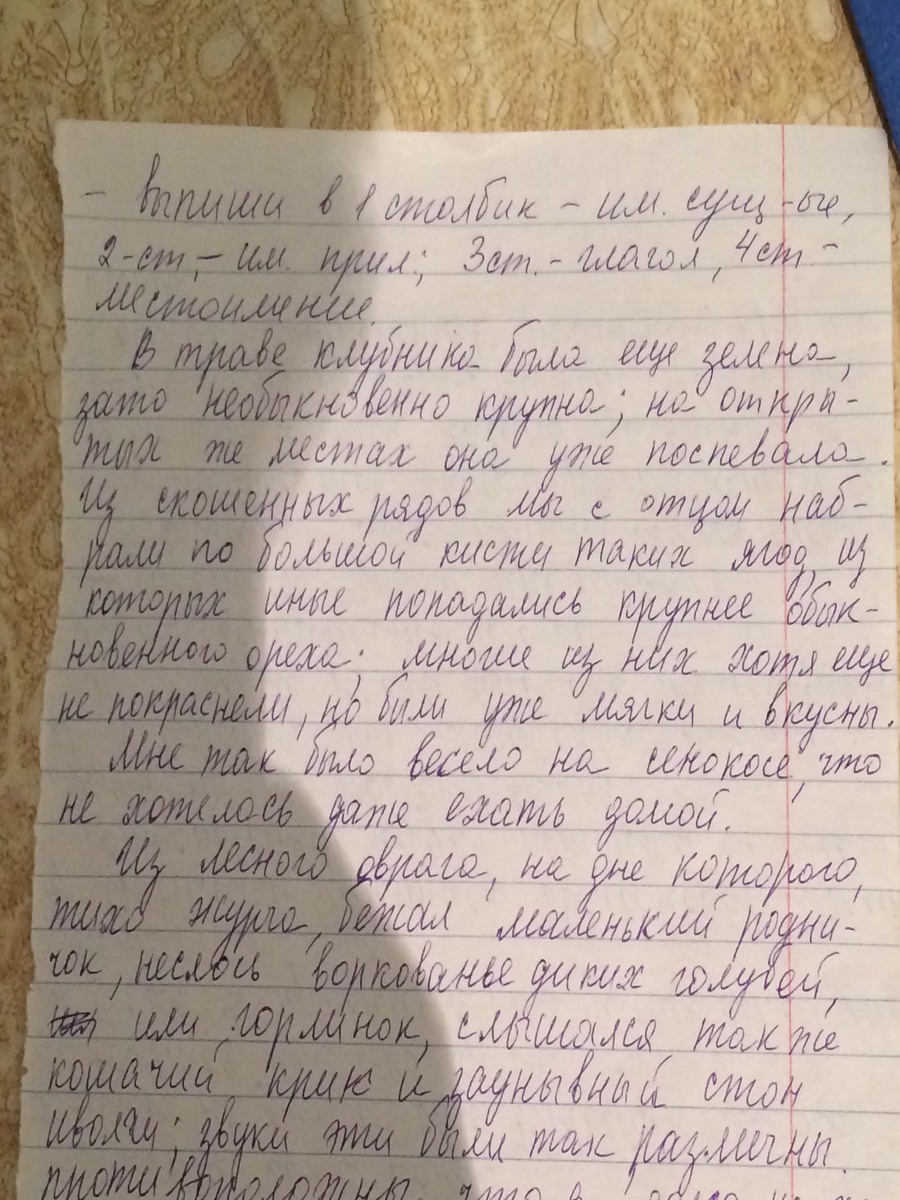 - выпиши в 1 столбик - им. сущ-ые,
2-ст, - им. прил; 3ст. - глагол, 4ст. -
местоимение.
В траве клубника была еще зелена,
зато необыкновенно крупна; на откры-
тых же местах она уже поспевала.
Из скошенных рядов мы с отцом наб-
рали по большой кисти таких ягод, из
которых иные попадались крупнее обык-
новенного ореха; многие из них хотя еще
не покраснели, но были уже мягки и вкусны.
Мне так было весело на сенокосе, что
не хотелось даже ехать домой.
Из лесного оврага, на дне которого,
тихо журча, бежал маленький родни-
чок, неслось воркованье диких голубей,
или горлинок, слышался также
кошачий крик и заунывный стон
иволги; звуки эти были так различны.
противоположны, что